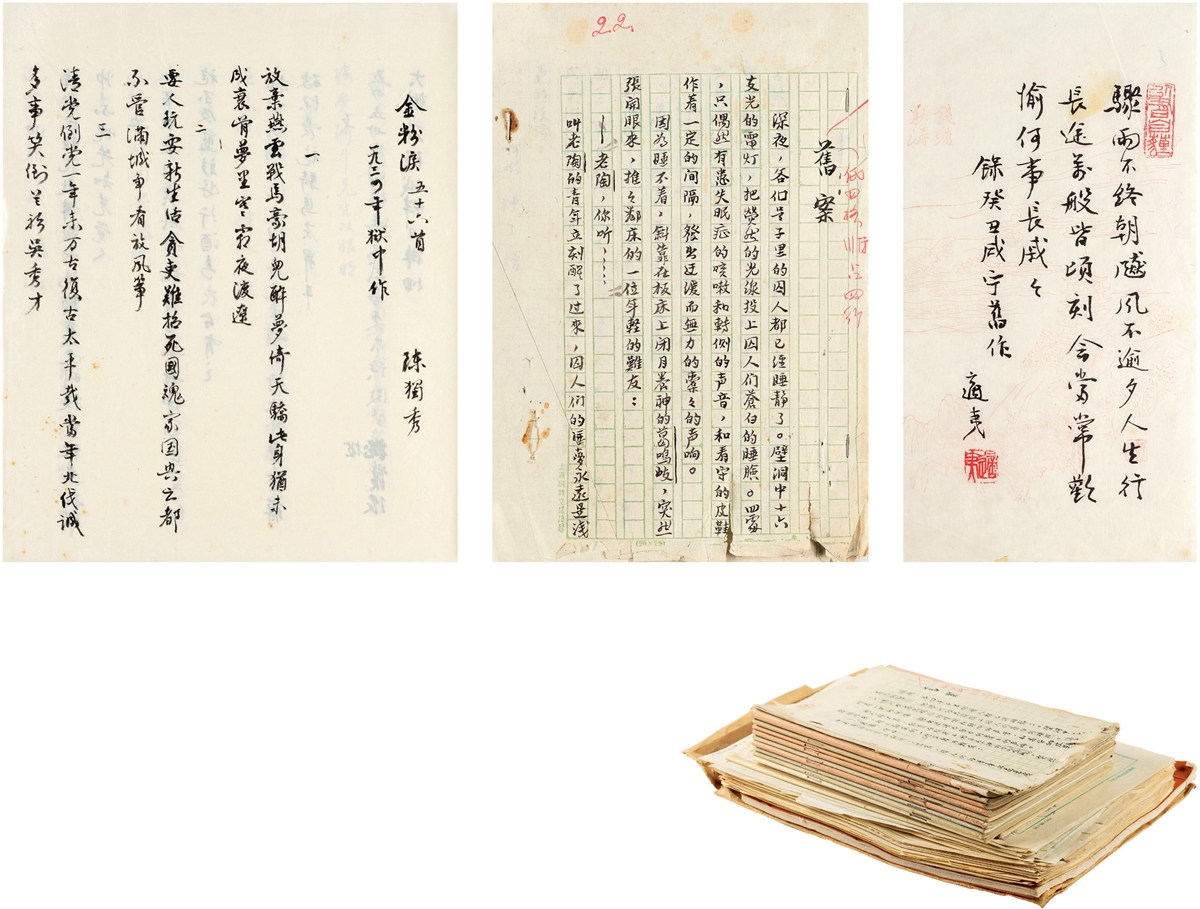 金粉淚 五十六首
一九三四年獄中作 陳獨秀
一
放棄燕雲戰馬豪胡兒醉夢倚天驕此身猶未
成衰骨夢里寒霜夜渡遼
二
要人玩耍新生活貪吏難招死國魂家国興亡都
不管滿城爭看放風箏
三
清党倒党一年來万古復古太平裁當年北伐誠
多事笑倒 吳秀才
22.
低四格 占四行
舊案
深夜，各个号子里的囚人都已經睡靜了。壁洞中十六
支光的電灯，把熒然的光線投上囚人們蒼白的睡臉。四處
，只偶然有患失眠症的咳嗽和轉側的声音，和看守的皮鞋
作着一定的間隔，發出迂渡而無力的橐々的声响。
因為睡不着，斜靠在板床上閉目養神的葛鳴岐，突然
張開眼來，推々鄰床的一位年輕的難友：
——老陶，你听，……
叫老陶的青年立刻醒了过來，囚人們的噩夢永遠是淺
驟雨不終朝飈風不逾夕人生行
長途萬般皆頃刻会當常歡
愉何事長戚々
錄癸丑咸宁舊作
適夷